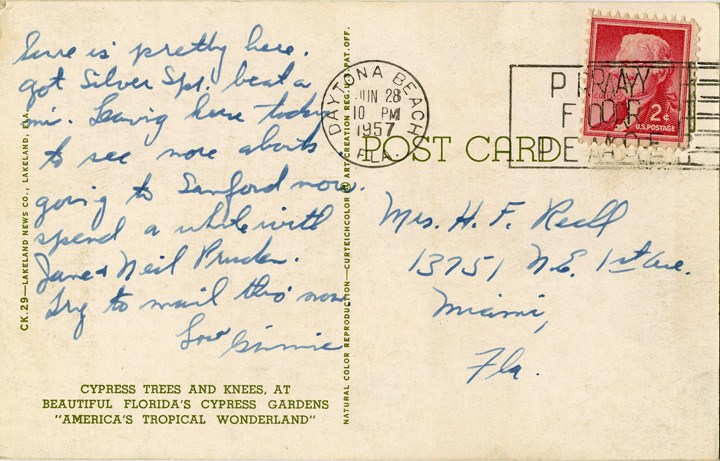 Sure is pretty here.
got Silver Spr. beat a
mi. Leaving here today
to see more abouts
going to Sanford now.
spend a while with
Jane & Neil Pruden.
Try to mail this now
Love Ginnie
CYPRESS TREES AND KNEES, AT
BEAUTIFUL FLORIDA'S CYPRESS GARDENS
"AMERICA'S TROPICAL WONDERLAND"
CK.29—LAKELAND NEWS CO., LAKELAND, FLA.
NATURAL COLOR REPRODUCTION—CURTEICHCOLOR ® ART CREATION REG. U.S. PAT. OFF.
DAYTONA BEACH
JUN 28
10 PM
1957
FLA.
POST CARD
PRAY
FOR
PEACE
2¢
U.S. POSTAGE
Mrs. H. F. Reall
13751 N.E. 1st Ave.
Miami,
Fla.